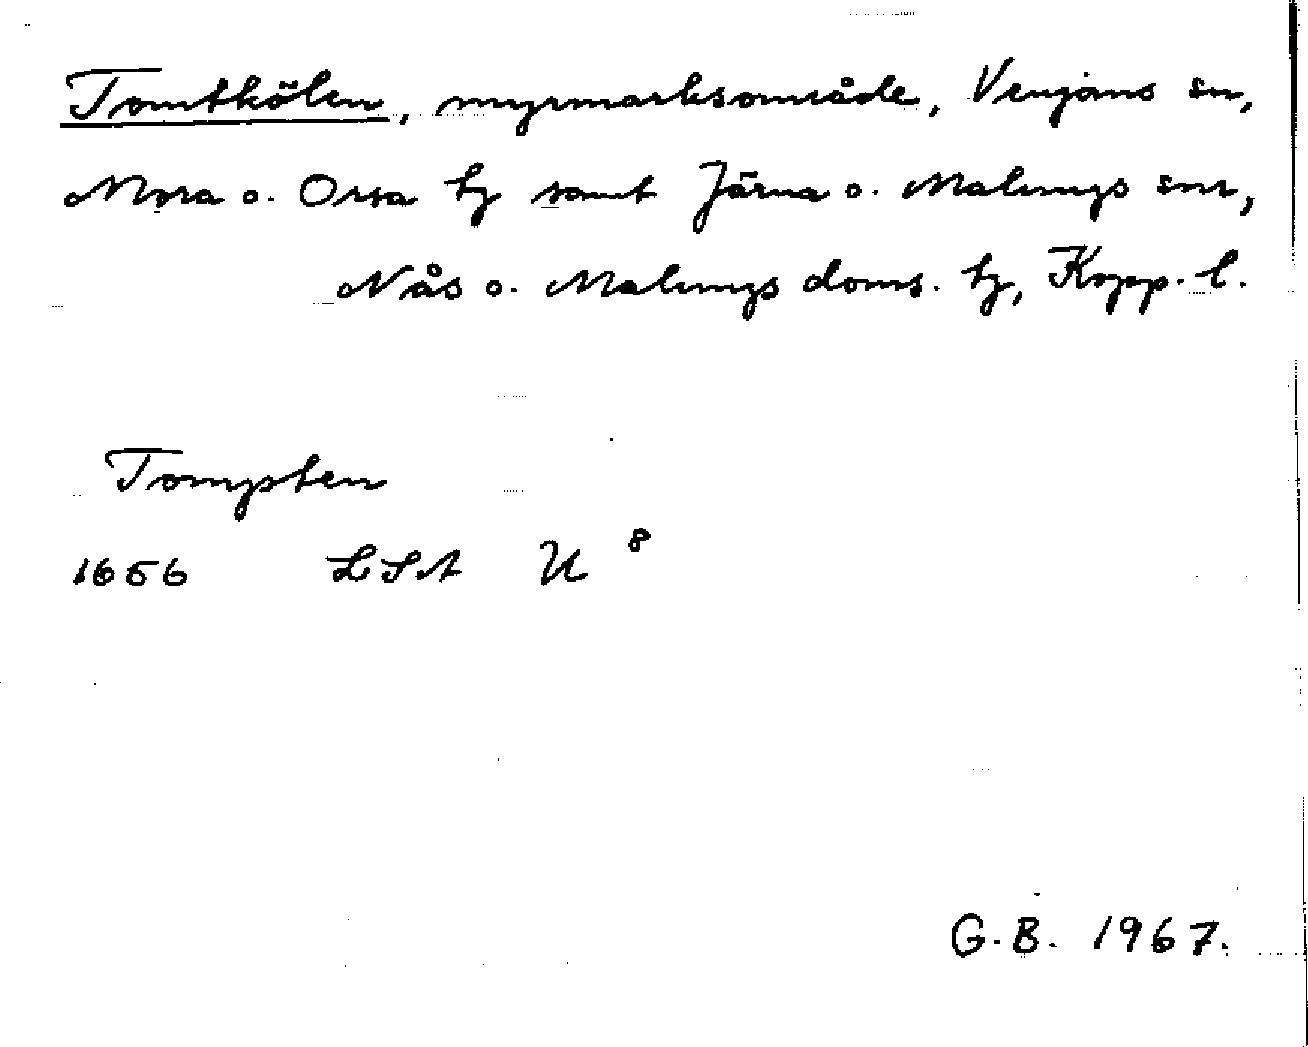 Tomtkölen, myrmarksområde, Venjans sn,
Mora o. Orsa tg samt Järna o. Malungs snr,
Nås o. Malungs doms. tg, Kopp. l.
Tompten
1656 LSA U 8
G.B. 1967.